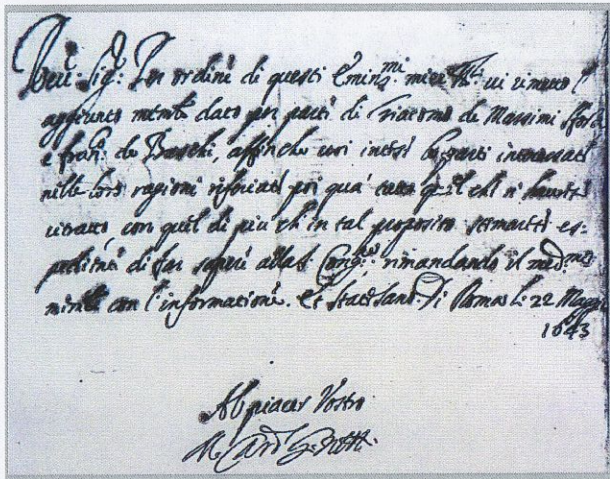 Sig.: Per ordine di questi Emin.mi miei vi rimetto l'
aggiunto mem.le dato per parte di Giacomo de Massimi
e de Baschi, affinche voi intese le parti interessate
nelle loro ragioni riferiate poi qua tutto quel che n'haverete
con quel di più ch'in tal proposito stimarete es-
di far sapere alla S. Cong.ne rimandando il med.mo
mem.le con l'informatione. Et state sano. Di Roma li 22 Maggio
1643
Al piacer Vostro
Il Card.